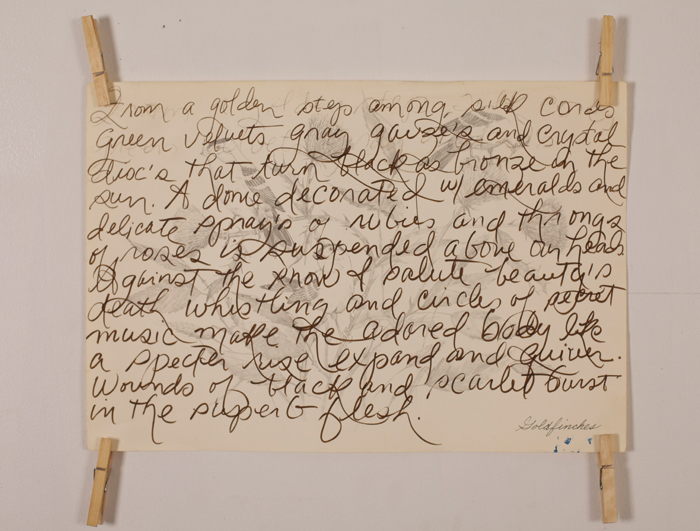 From a golden step among silk cords
Green velvets gray gauze's and Crystal
Disc's that turn black as bronze in the
sun. A dome decorated w/ emeralds and
delicate spray's of rubies and throngs
of roses is suspended above our heads
Against the snow I salute beauty's
death whistling and circles of secret
music make the adored body like
a specter rise expand and quiver.
Wounds of black and scarlet burst
in the superb flesh.
Goldfinches